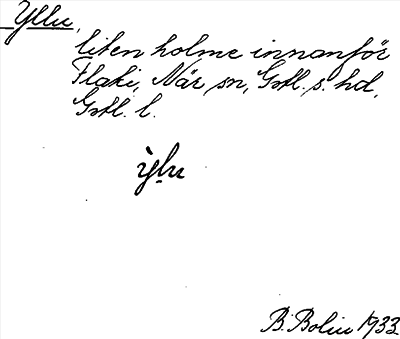 Yllu,
liten holme innanför
Flaki, När sn, Gotl. s. hd,
Gotl. l.
ỳlu
B. Bolin 1933